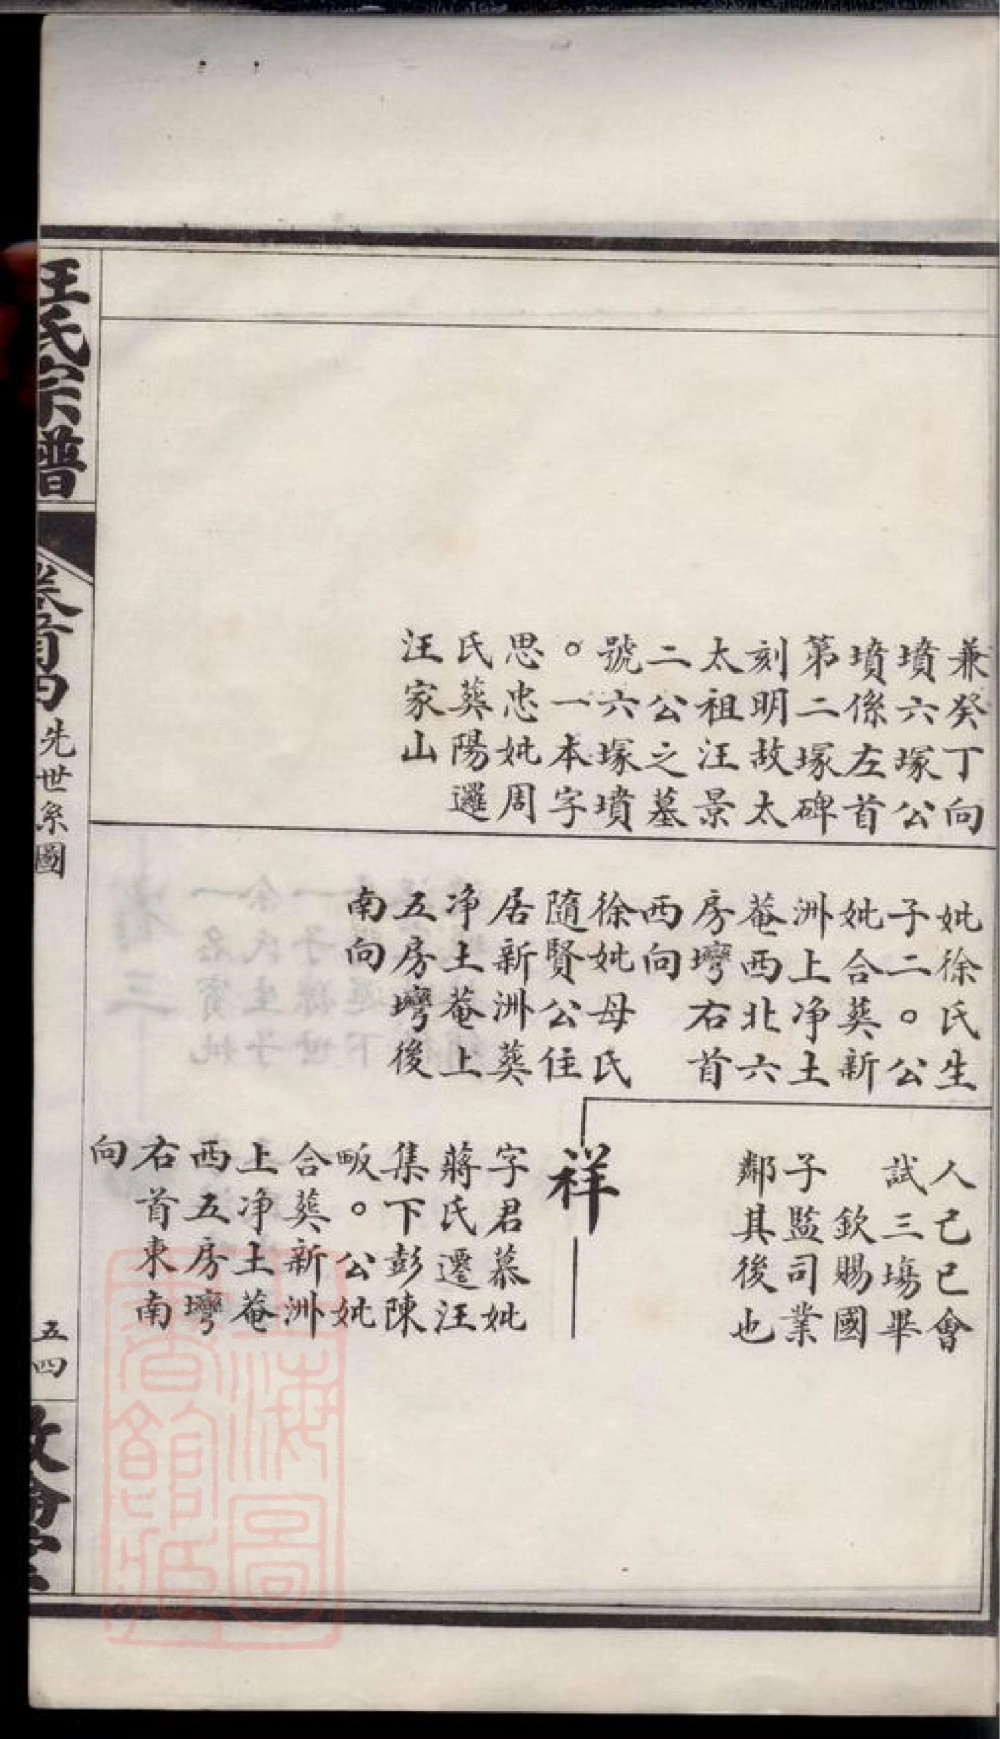 兼癸丁向
墳六塚公
墳係左首
第二塚碑
刻明故太
太祖汪景
二公之墓
號六塚墳
。一本字
思忠妣周
氏葬陽邏
汪家山
妣徐氏生
子二。公
妣合葬新
洲上净土
菴西北六
房塆右首
西向
徐妣母氏
隨賢公住
居新洲葬
净土菴上
五房塆後
南向
人己巳會
試三塲畢
欽賜國
子監司業
鄰其後也
祥
字君慕妣
蔣氏遷汪
集下彭陳
畈。公妣
合葬新洲
上净土菴
西五房塆
右首東南
向
汪氏宗譜
卷首四
先世系圖
五四
敦倫堂